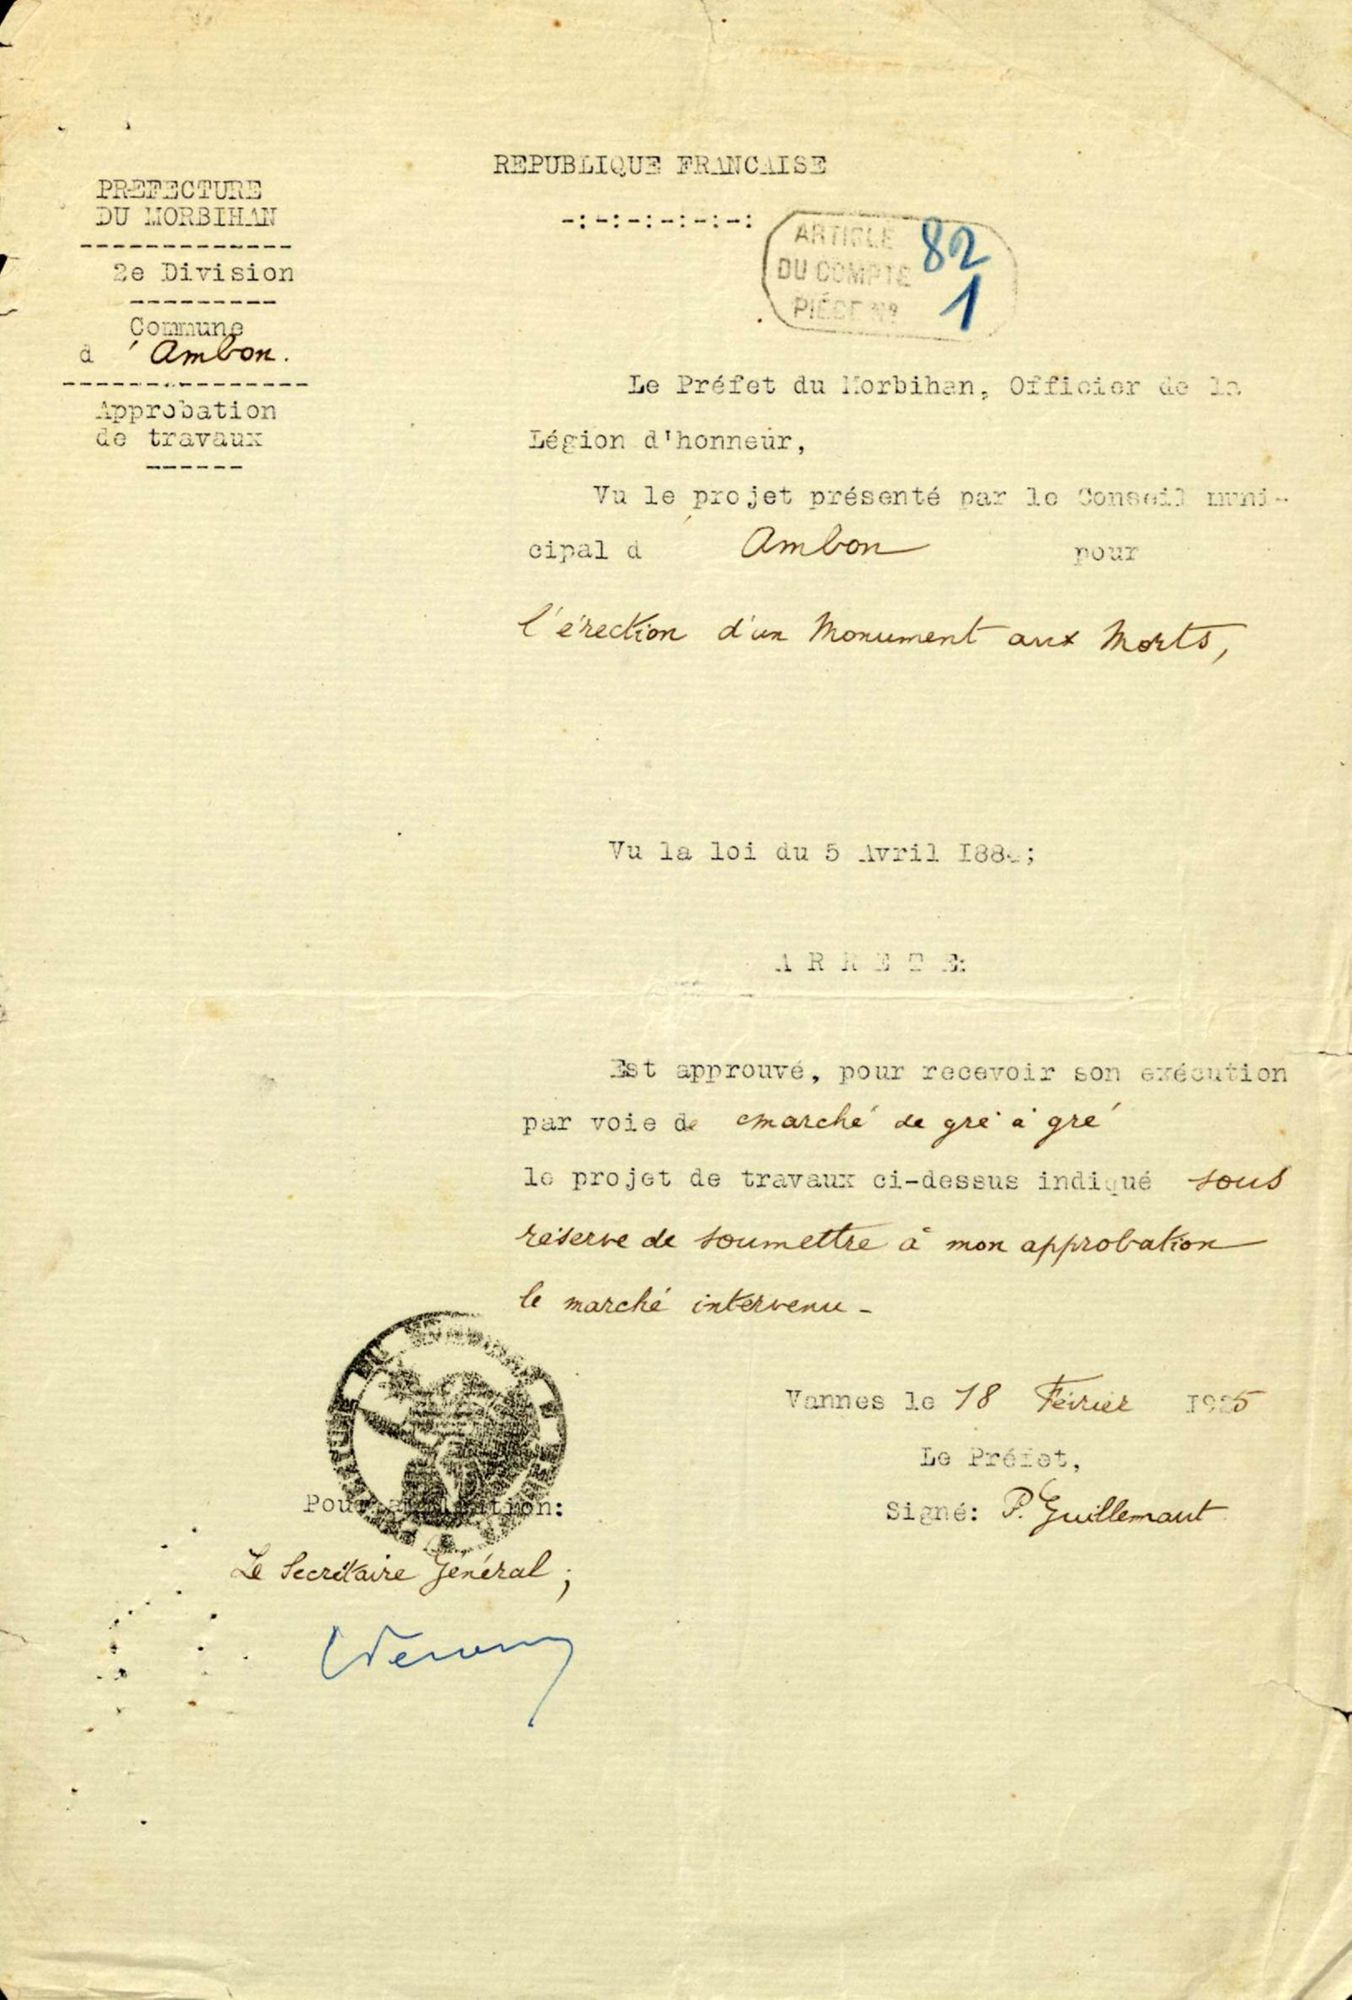 REPUBLIQUE FRANCAISE
-:-:-:-:-:-:
PREFECTURE
DU MORBIHAN
2e Division
Commune
d'Ambon.
Approbation
de travaux
ARTICLE 82
DU COMPTE
PIÈCE Nº 1
Le Préfet du Morbihan, Officier de la
Légion d'honneur,
Vu le projet présenté par le Conseil muni-
cipal d'Ambon pour
l'érection d'un Monument aux Morts,
Vu la loi du 5 Avril I884;
A R R E T E:
Est approuvé, pour recevoir son exécution
par voie de marché de gré à gré
le projet de travaux ci-dessus indiqué sous
réserve de soumettre à mon approbation
le marché intervenu -
Vannes le 18 Février I925
Le Préfet,
Signé: P. Guillemaut
Pour ampliation:
Le Secrétaire Général,